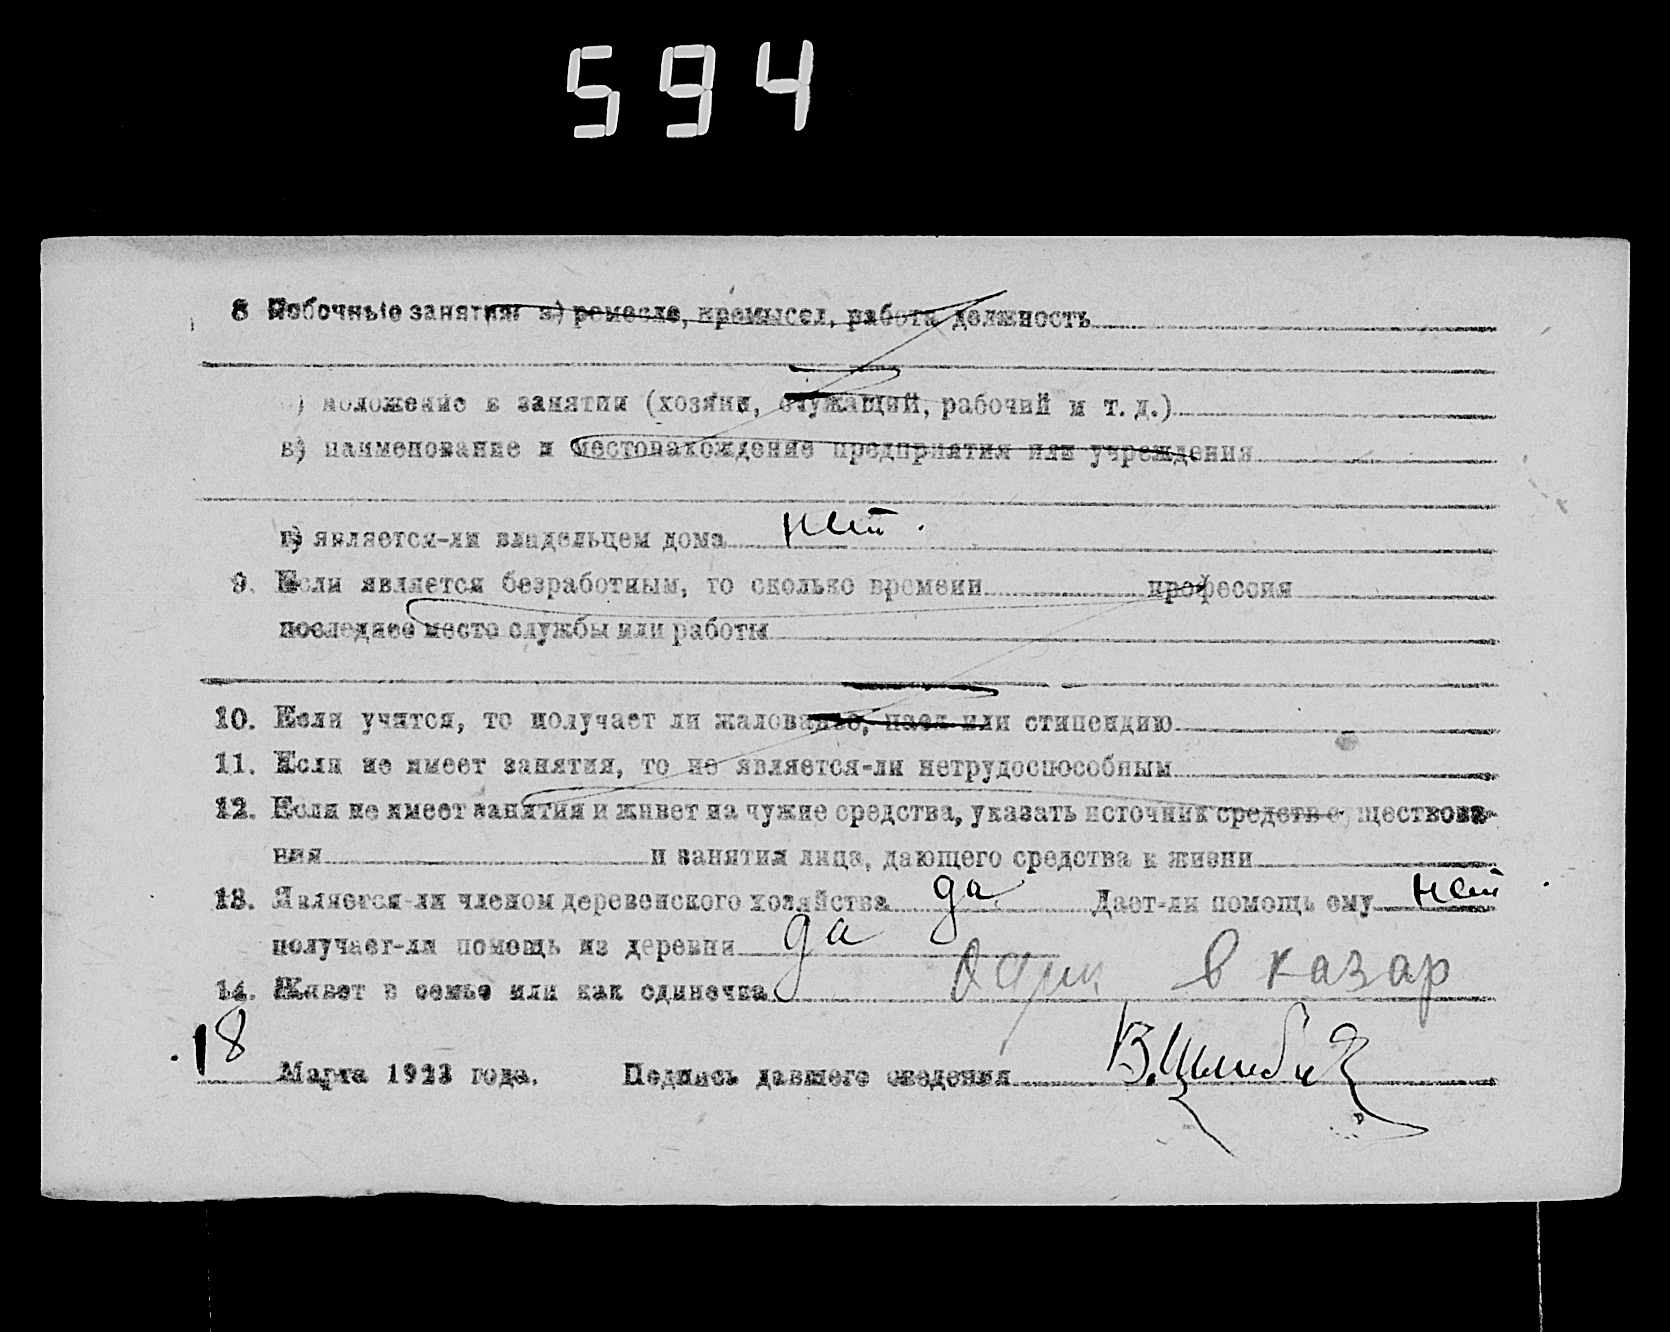 594
8 Побочные занятия: а) ремесло, промысел, работа, должность
б) положение в занятии (хозяин, служащий, рабочий и т. д.)
в) наименование и местонахождение предприятия или учреждения
г) является-ли владельцем дома нет.
9. Если является безработным, то сколько времени профессия
последнее место службы или работы
10. Если учится, то получает ли жалованье, паек или стипендию
11. Если не имеет занятия, то не является-ли нетрудоспособным
12. Если не имеет занятия и живет на чужие средства, указать источник средств существова-
ния и занятия лица, дающего средства к жизни
13. Является-ли членом деревенского хозяйства да. Дает-ли помощь ему нет.
получает-ли помощь из деревни да
14. Живет в семье или как одиночка один в казар
18 Марта 1923 года. Подпись давшего сведения